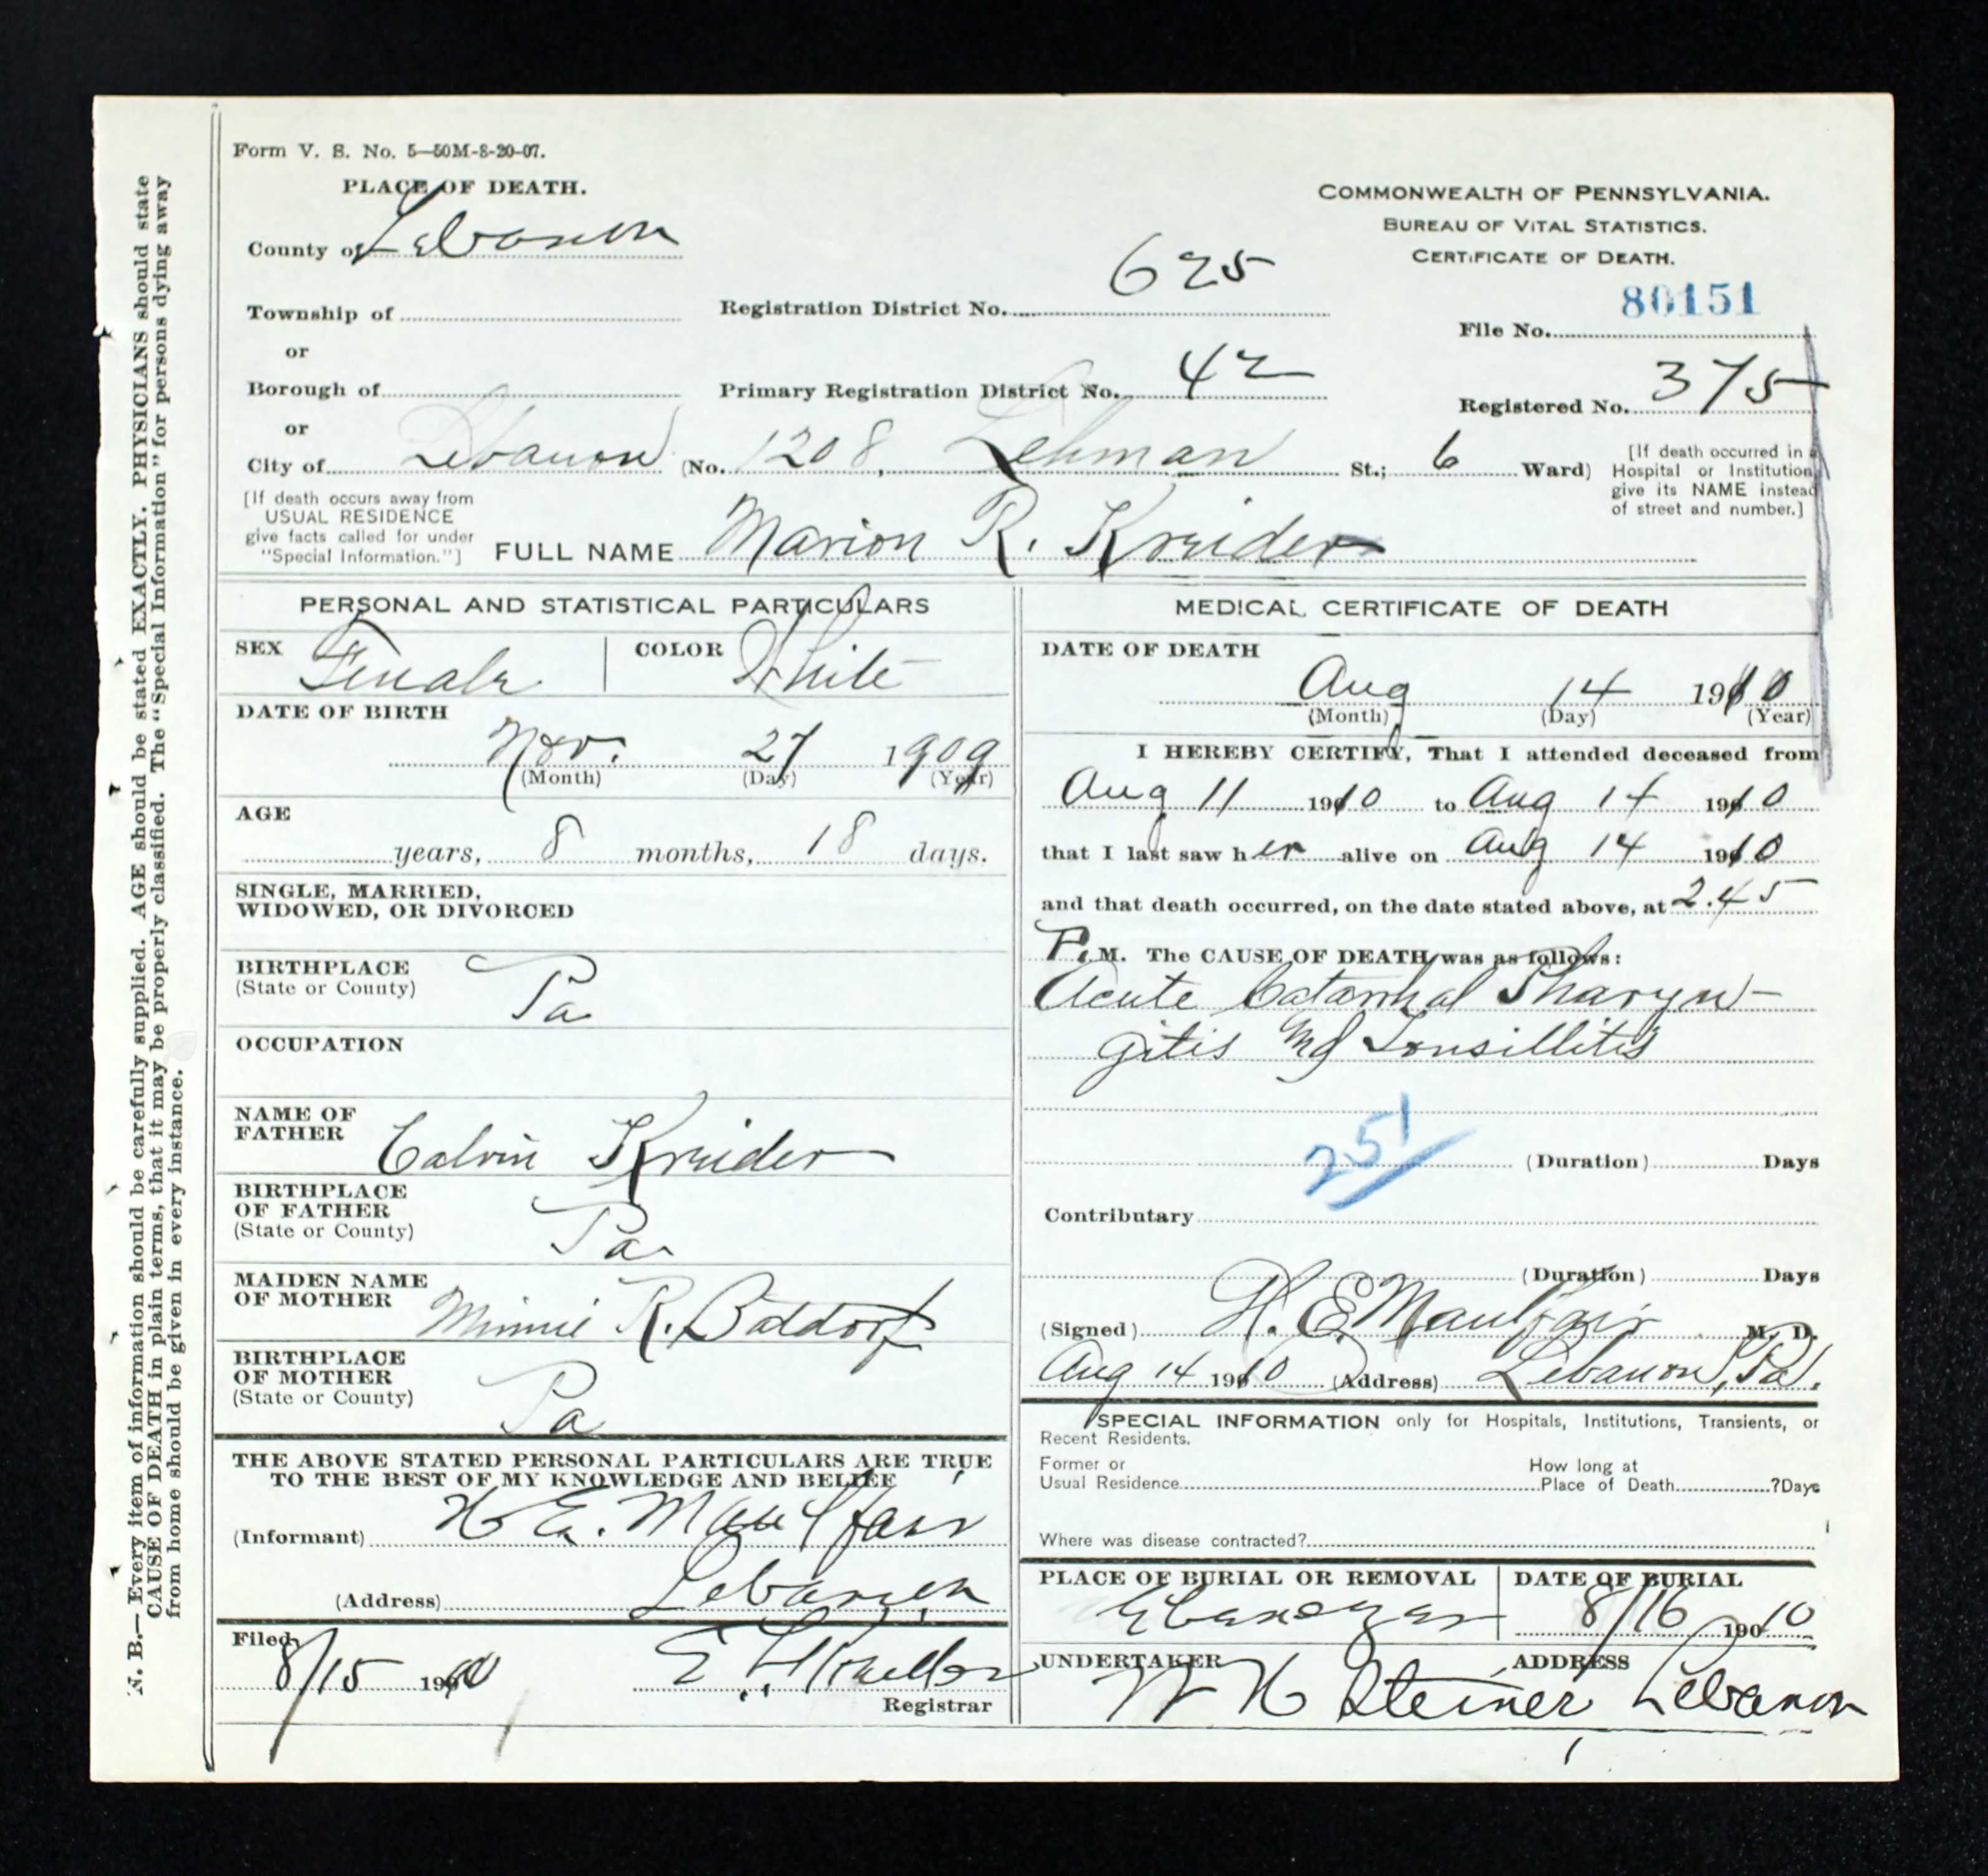 Form V. S. No. 5—50M-8-20-07.
PLACE OF DEATH.
County of Lebanon
Township of
or
Borough of
or
City of Lebanon (No. 1208, Lehman St.; 6 Ward)
[If death occurs away from
USUAL RESIDENCE
give facts called for under
"Special Information."]
Registration District No. 625
Primary Registration District No. 42
COMMONWEALTH OF PENNSYLVANIA.
BUREAU OF VITAL STATISTICS.
CERTIFICATE OF DEATH.
File No. 80151
Registered No. 375
[If death occurred in a
Hospital or Institution
give its NAME instead
of street and number.]
FULL NAME Marion R. Kreider
PERSONAL AND STATISTICAL PARTICULARS
SEX Female
COLOR White
DATE OF BIRTH
Nov. 27 1909
(Month) (Day) (Year)
AGE
years, 8 months, 18 days.
SINGLE, MARRIED,
WIDOWED, OR DIVORCED
BIRTHPLACE
(State or County) Pa
OCCUPATION
NAME OF
FATHER Calvin Kreider
BIRTHPLACE
OF FATHER
(State or County) Pa
MAIDEN NAME
OF MOTHER Minnie R. Boddorf
BIRTHPLACE
OF MOTHER
(State or County) Pa
THE ABOVE STATED PERSONAL PARTICULARS ARE TRUE
TO THE BEST OF MY KNOWLEDGE AND BELIEF
(Informant) H. E. Maulfair
(Address) Lebanon
Filed 8/15 1910
Registrar
MEDICAL CERTIFICATE OF DEATH
DATE OF DEATH
Aug 14 1910
(Month) (Day) (Year)
I HEREBY CERTIFY, That I attended deceased from
Aug 11 1910 to Aug 14 1910
that I last saw her alive on Aug 14 1910
and that death occurred, on the date stated above, at 2.45
P. M. The CAUSE OF DEATH was as follows:
Acute Catarrhal Pharyn-
gitis and Tonsillitis
251
(Duration) Days
Contributary
(Duration) Days
(Signed) H. E. Maulfair M. D.
Aug 14 1910 (Address) Lebanon, Pa.
SPECIAL INFORMATION only for Hospitals, Institutions, Transients, or
Recent Residents.
Former or
Usual Residence
How long at
Place of Death ?Days
Where was disease contracted?
PLACE OF BURIAL OR REMOVAL
Ebenezer
DATE OF BURIAL
8/16 1910
UNDERTAKER
W H Steiner
ADDRESS
Lebanon
N. B.—Every item of information should be carefully supplied. AGE should be stated EXACTLY. PHYSICIANS should state
CAUSE OF DEATH in plain terms, that it may be properly classified. The "Special Information" for persons dying away
from home should be given in every instance.